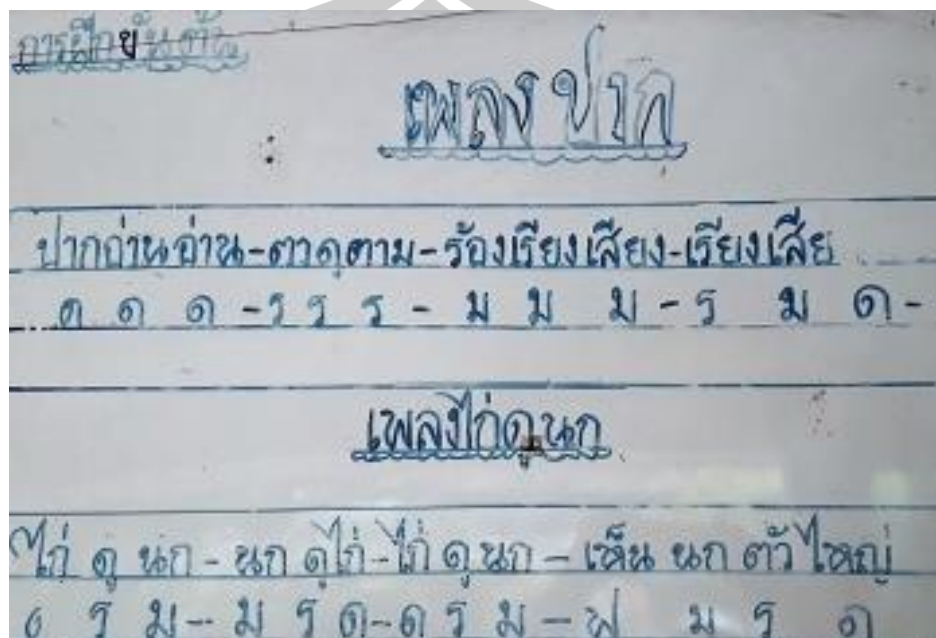 การฝึกขั้นต้น
เพลง ปาก
ปากอ่านอ่าน-ตาดูตาม-ร้องเรียงเสียง-เรียงเสีย
ด ด ด - ร ร ร - ม ม ม - ร ม ด -
เพลงไก่ดูนก
ไก่ ดู นก - นก ดูไก่-ไก่ ดู นก - เห็น นก ตัว ใหญ่
ร ม -- ม ร ด-ด ร ม - ฟ ม ร ด